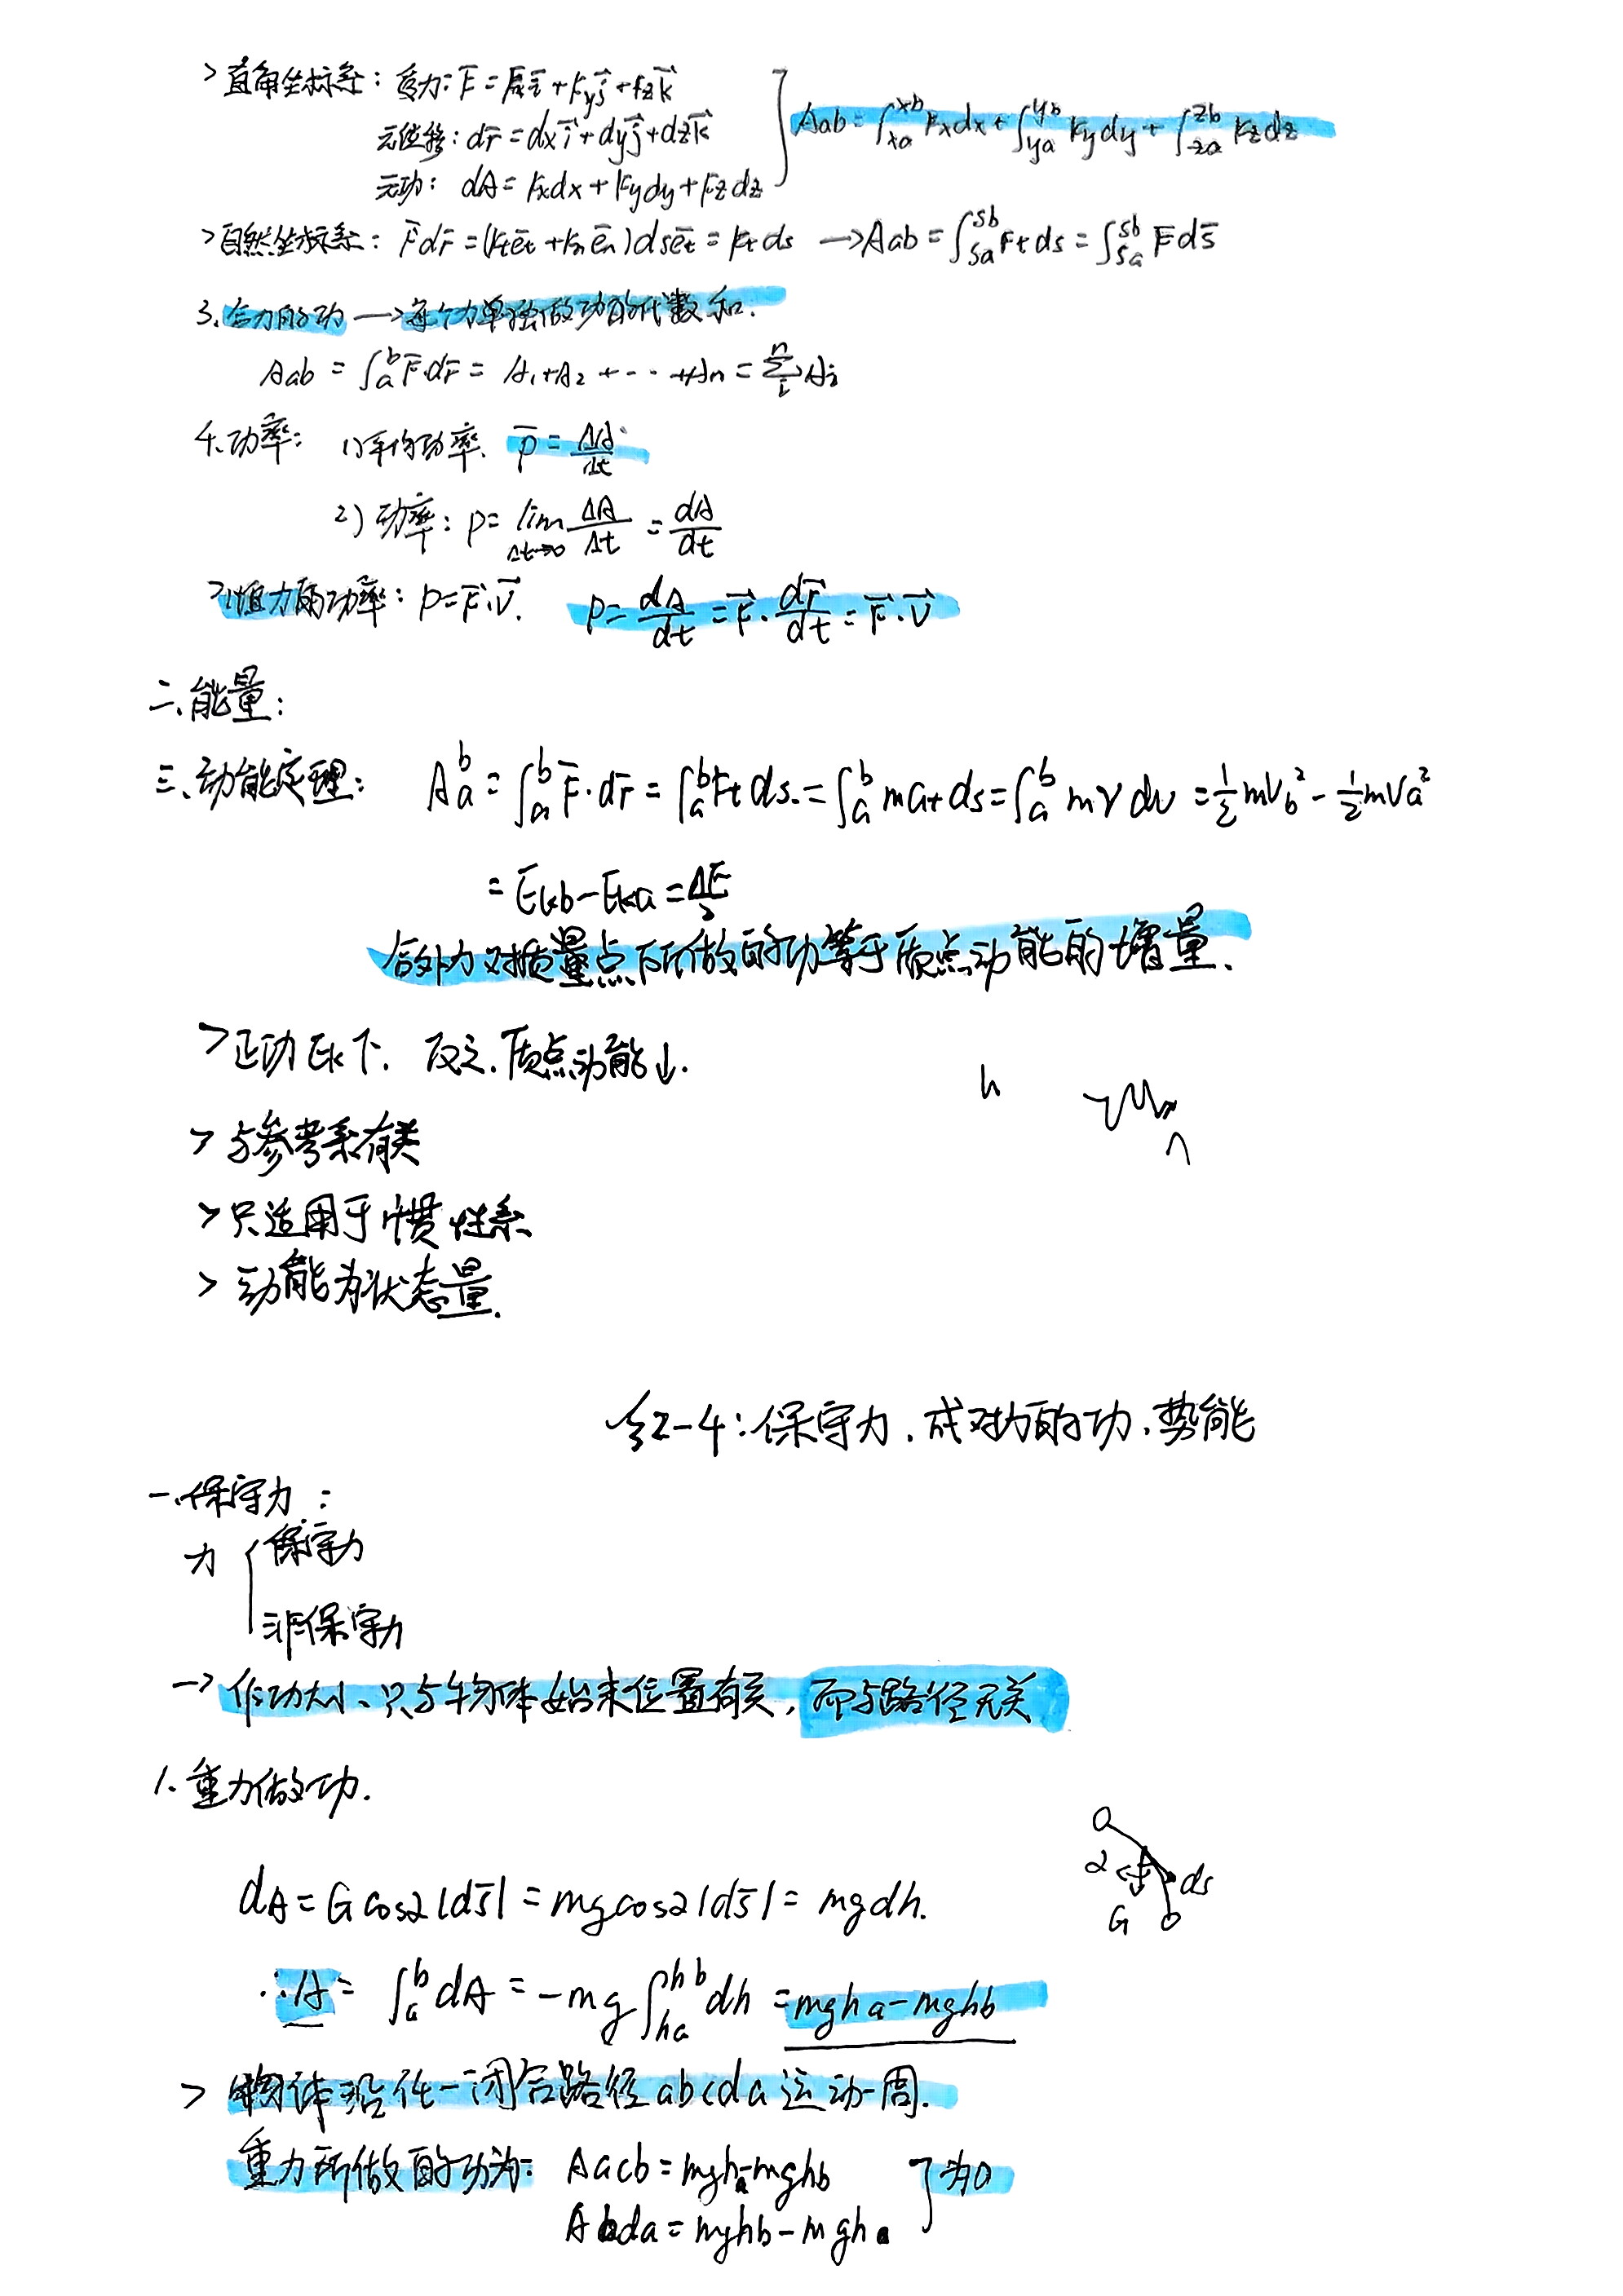 >直角坐标系：受力：F̄=Fxi⃗+Fyj⃗+Fzk⃗
元位移：dr̄=dxi⃗+dyj⃗+dzk⃗
元功：dA=Fxdx+Fydy+Fzdz
Aab=∫xa^xb Fxdx+∫ya^yb Fydy+∫za^zb Fzdz
>自然坐标系：F̄dr̄=(Ftēt+Fnēn)dsēt=Ftds →Aab=∫Sa^Sb Ftds=∫Sa^Sb F̄ds̄
3.合力的功→每个力单独做功的代数和.
Aab=∫a^b F̄·dr̄=A₁+A₂+···+An=∑i^n Ai
4.功率：1)平均功率. P̄=ΔA/Δt
2)功率：P=lim Δt→0 ΔA/Δt=dA/dt
>恒力的功率：P=F⃗·V⃗. P=dA/dt=F⃗·dr⃗/dt=F⃗·V⃗
二.能量：
三.动能定理：Aa^b=∫a^b F̄·dr̄=∫a^b Ftds.=∫a^b matds=∫a^b mvdv=½mVb²-½mVa²
=Ekb-Eka=ΔE
合外力对质量点所做的功等于质点动能的增量.
>正功Ek↑. 反之.质点动能↓.
h
>与参考系有关
>只适用于惯性系
>动能为状态量.
§2-4：保守力.成对力的功.势能
一.保守力：
力{保守力
非保守力
→作功大小、只与物体始末位置有关，而与路径无关
1.重力做功.
α ds
G
dA=Gcosα|ds̄|=mgcosα|ds̄|=mgdh.
∴A=∫a^b dA=-mg∫ha^hb dh=mgha-mghb
>物体沿任一闭合路径abcda运动一周.
重力所做的功为：Aacb=mgha-mghb
Abda=mghb-mgha
]为0